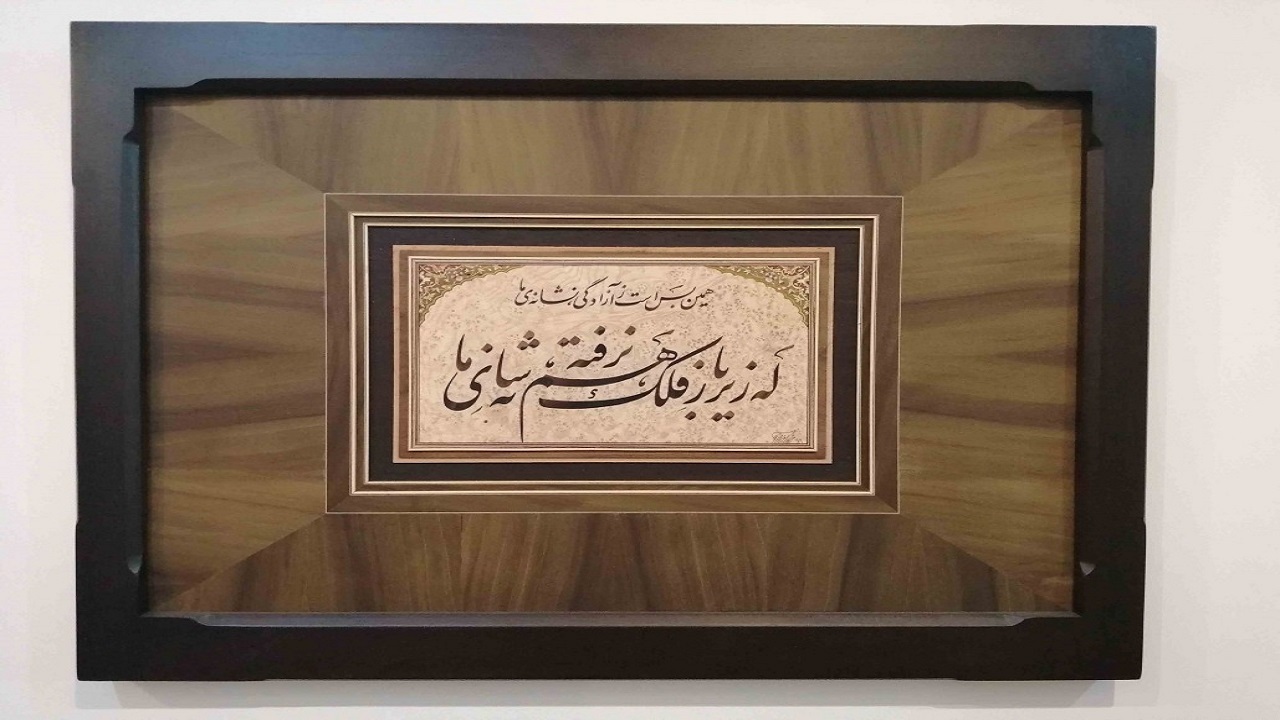 همین بس است ز آزادگی نشانه‌ی ما
که زیر بار فلک هم نرفته شانه‌ی ما